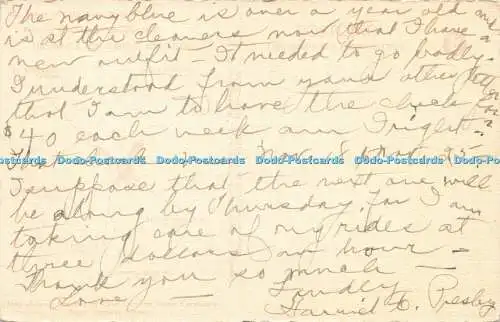 The navy blue is over a year old and
is at the cleaners now that I have a
new outfit - It needed to go badly.
I understood from your other letter
that I am to have the check
$40 each week am I right
Dodo-Postcards Dodo-Postcards Dodo-Postcards Dodo-Postcards Dodo-Postcards Dodo-Postcards
I suppose that the next one will
be along by Thursday, for I am
taking care of my rides at
three dollars an hour -
Thank you so much -
Love - Fondly
Harriet C. Presby